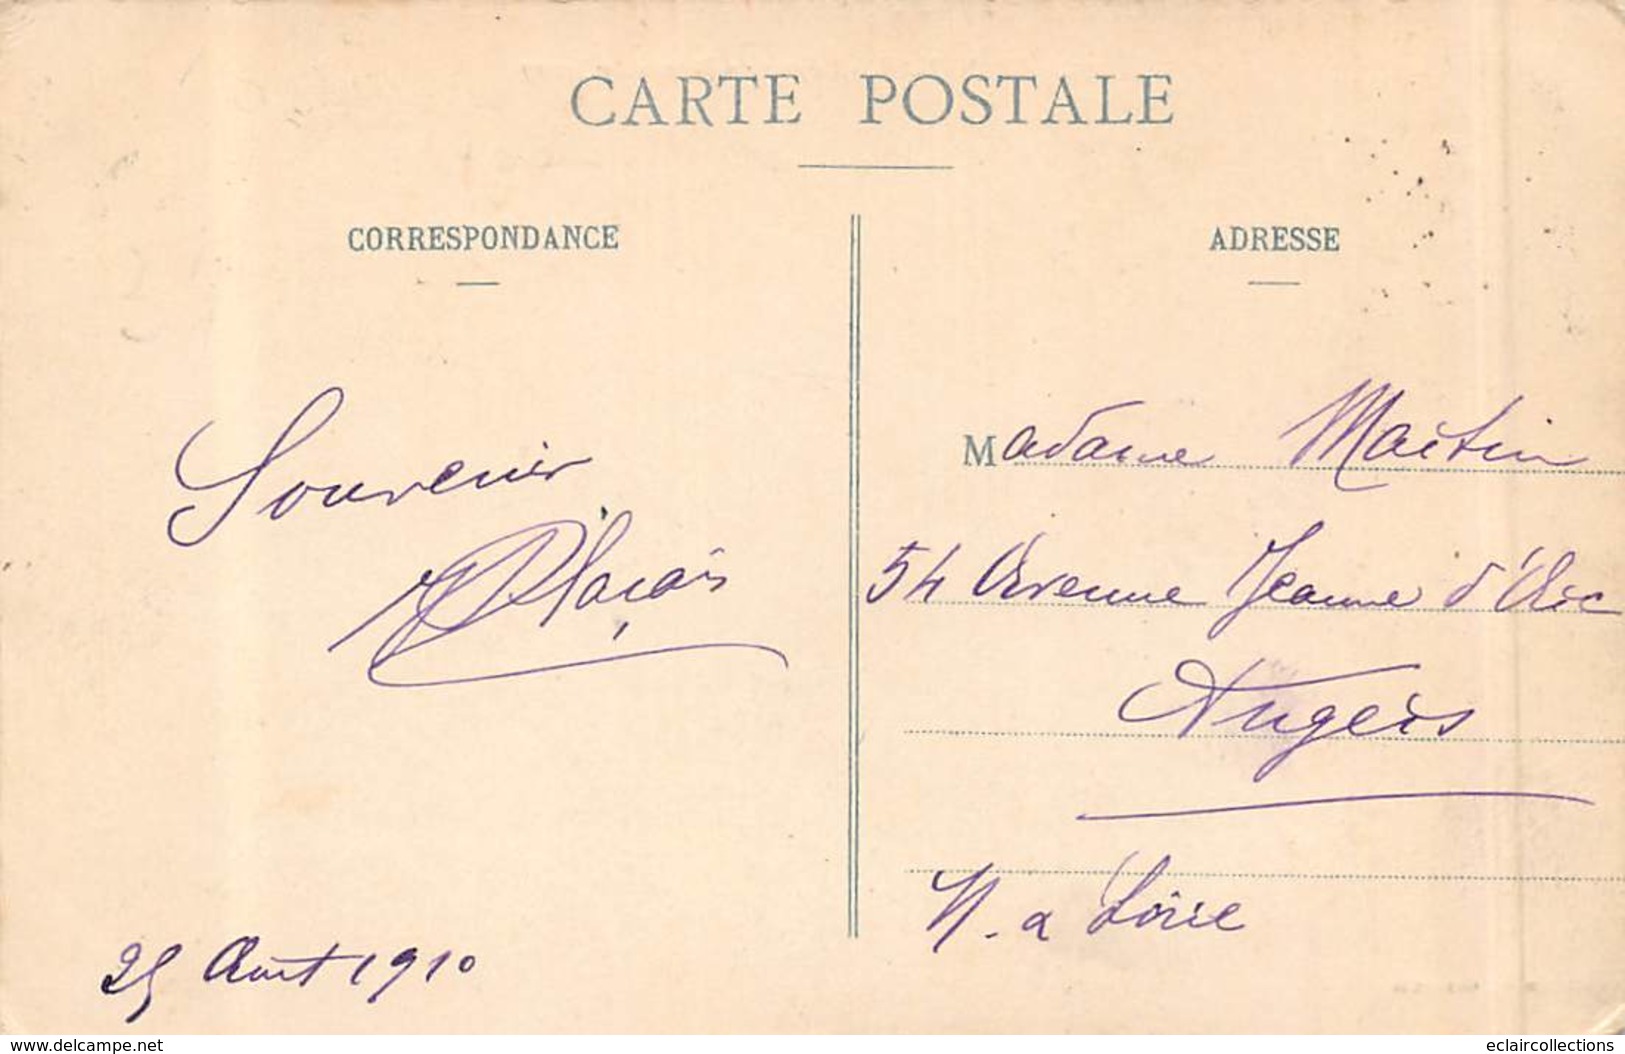 CARTE POSTALE
CORRESPONDANCE
ADRESSE
Souvenir
Madame Martin
54 Avenue Jeanne d'Arc
Angers
M. a Loire
25 Aout 1910
www.delcampe.net
eclaircollections